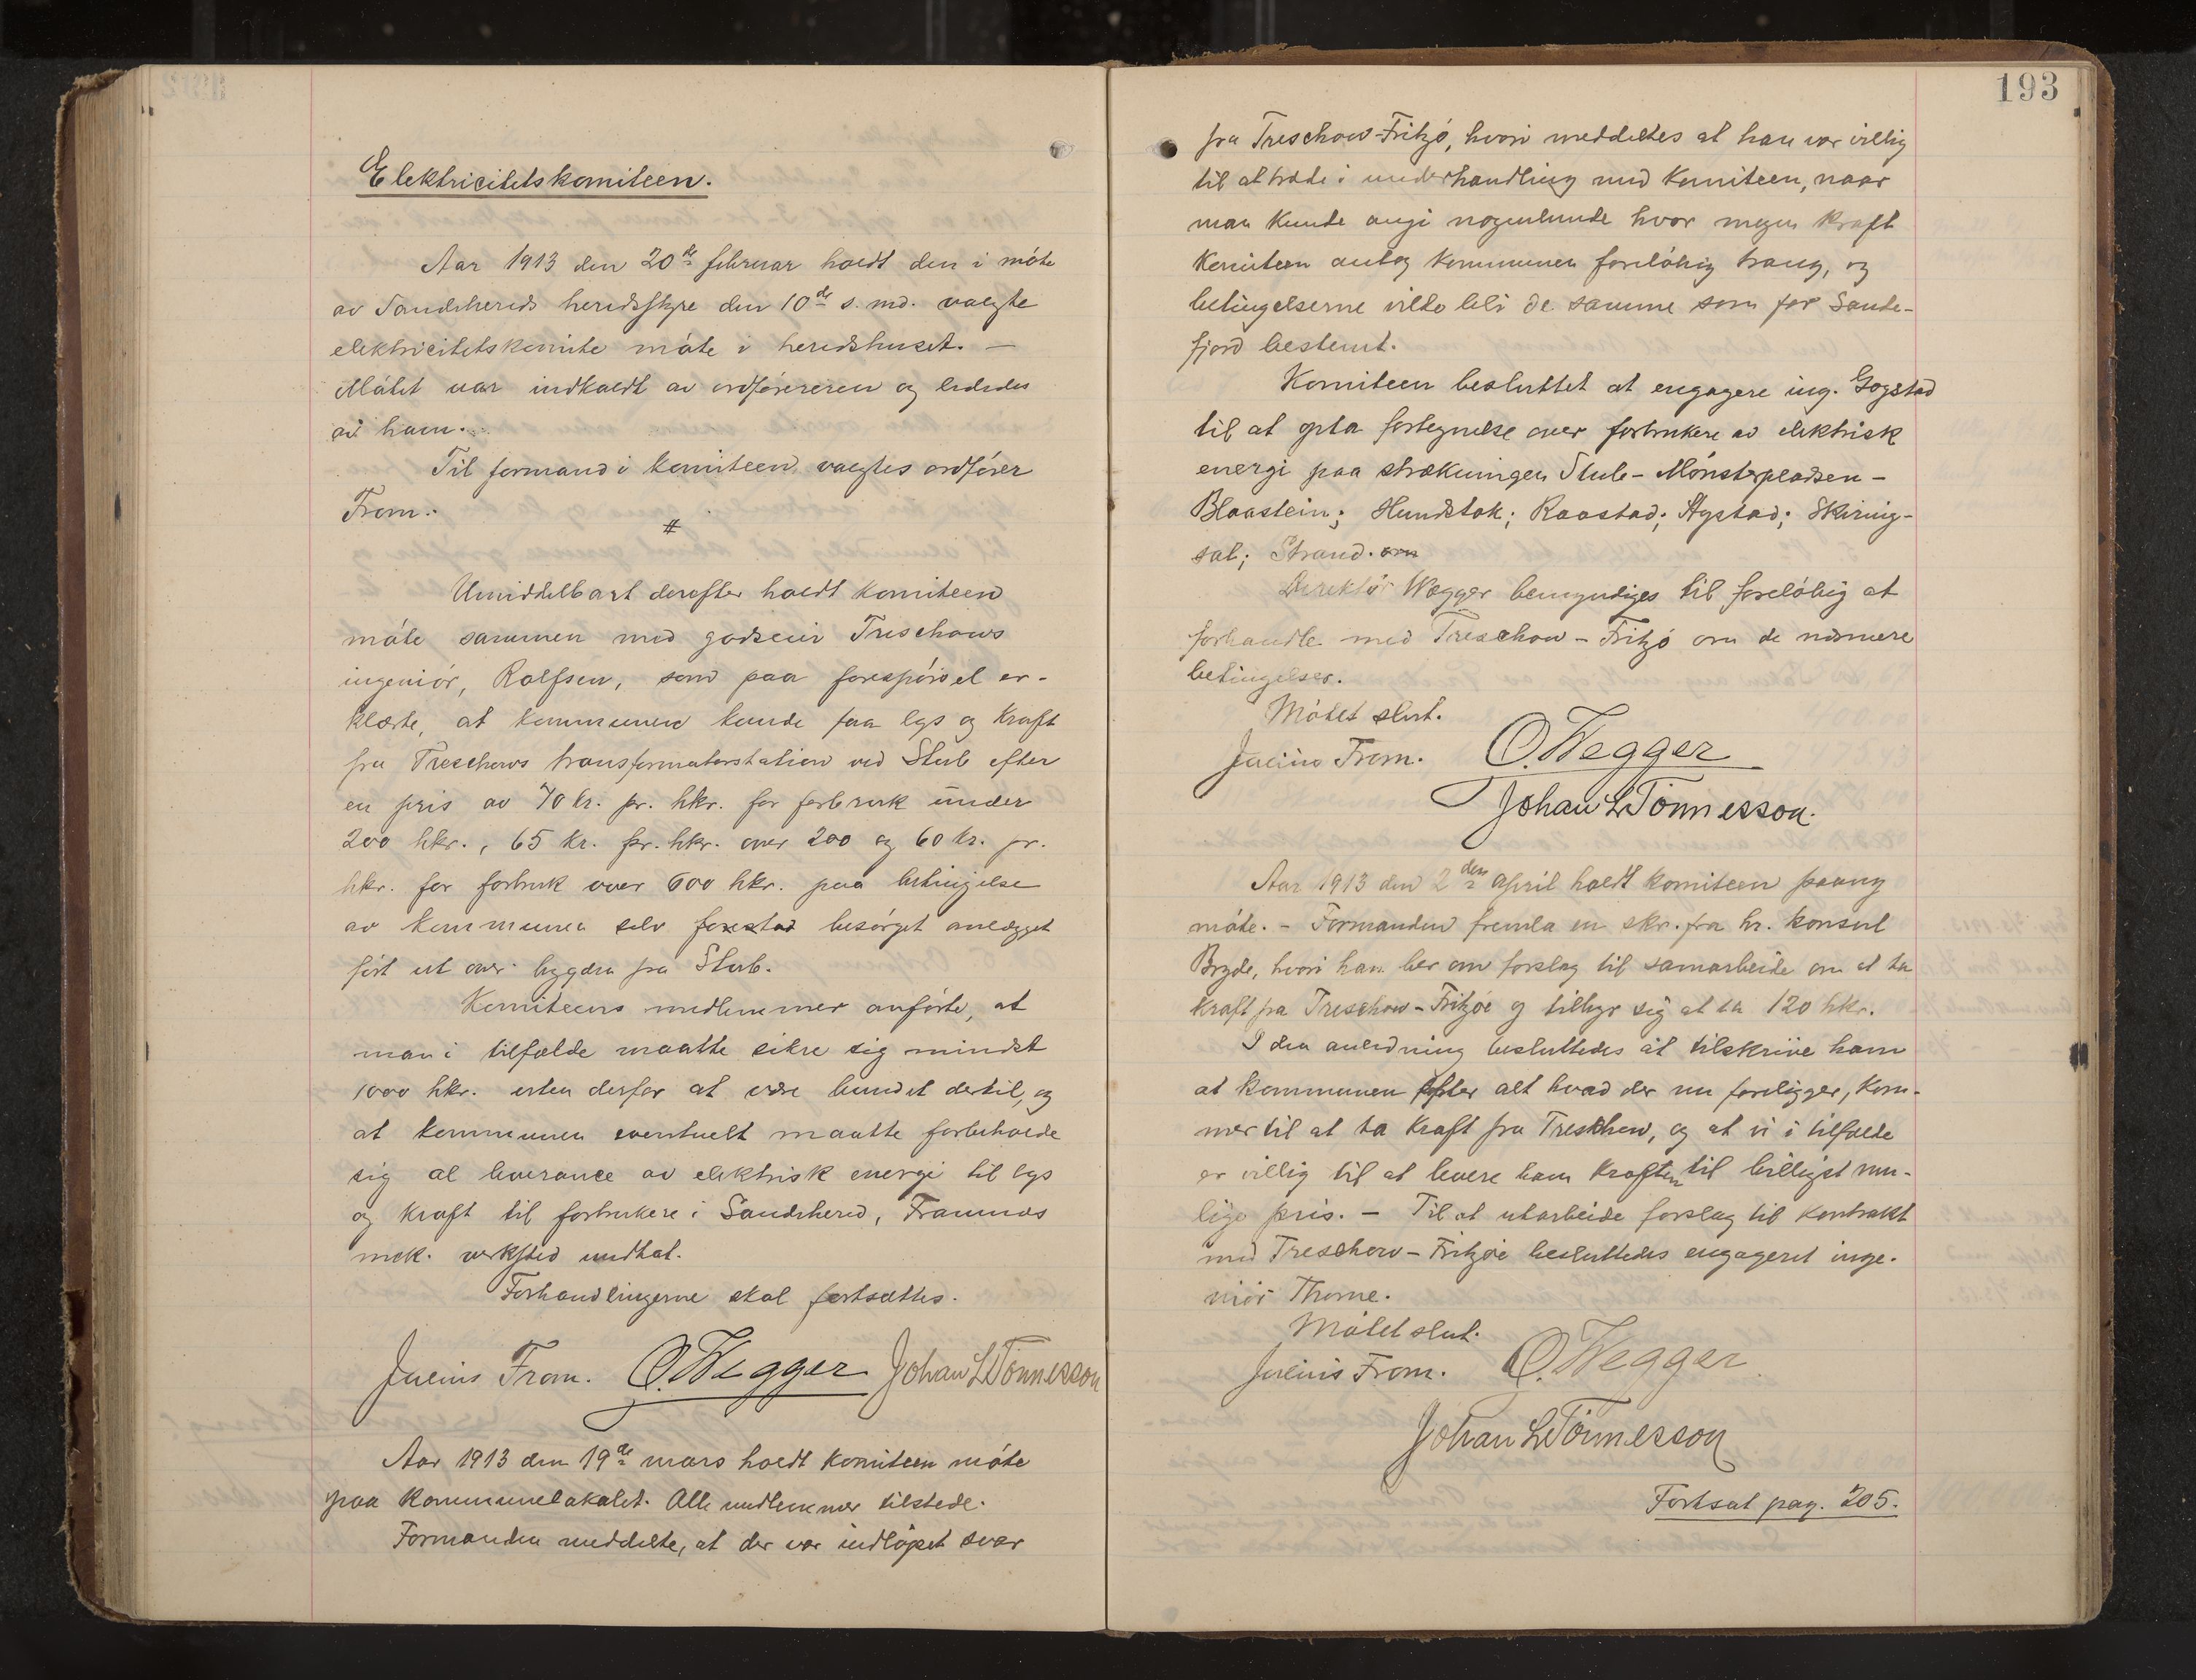 Elektricitetskomiteen.
Aar 1913 den 20de februar holdt den i móte
av Sandeherreds herredsstyre den 10de s. md. valgte
elektricitetskomite móte i herredshuset. —
Mótet var indkaldt av ordfóreren og lededes
av ham.
Til formand i komiteen valgtes ordfórer
From.
#
Umiddelbart derefter holdt komiteen
móte sammen med godseier Treschows
ingeniór, Rolfsen, som paa forespórsel er-
klærte, at kommunen kunde faa lys og kraft
fra Treschows transformatorstation ved Stub efter
en pris av 70 kr. pr. hkr. for forbruk under
200 hkr., 65 kr. pr. hkr. over 200 og 60 kr. pr.
hkr. for forbruk over 600 hkr. paa betingelse
av kommunen selv besórget anlægget
fórt ut over bygden fra Stub.
Komiteens medlemmer anfórte, at
man i tilfælde maatte sikre sig mindst
1000 hkr. uten derfor at være bundet dertil, og
at kommunen eventuelt maatte forbeholde
sig al leverance av elektrisk energi til lys
og kraft til forbrukere i Sandeherred, Framnæs
mek. verksted undtat.
Forhandlingerne skal fortsættes.
Julius From. O. Wegger Johan L Tönnesson
Aar 1913 den 19de mars holdt komiteen móte
paa kommunelokalet. Alle medlemmer tilstede.
Formanden meddelte, at der var indlópet svar
193
fra Treschow-Fritzó, hvori meddeltes at han var villig
til at træde i underhandling med komiteen, naar
man kunde angi nogenlunde hvor megen kraft
komiteen antog kommunen forelóbig trang, og
betingelserne vilde bli de samme som for Sande-
fjord bestemt.
Komiteen besluttet at engagere ing. Gogstad
til at opta fortegnelse over forbrukere av elektrisk
energi paa strækningen Stub - Mónsterpladsen -
Blaastein; Hundstok; Raastad; Nystad; Skiring-
sal; Strand.
Direktór Wegger bemyndiges til forelóbig at
forhandle med Treschow - Fritzó om de nærmere
betingelser.
Mótet slut.
Julius From. O. Wegger
Johan L Tönnesson.
Aar 1913 den 2den april holdt komiteen paany
móte. - Formanden fremla en skr. fra hr. konsul
Bryde, hvori han ber om forslag til samarbeide om at ta
kraft fra Treschow - Fritzóe og tilbyr sig at ta 120 hkr.
I den anledning besluttedes at tilskrive ham
at kommunen efter alt hvad der nu foreligger, kom-
mer til at ta kraft fra Treschow, og at vi i tilfælde
er villig til at levere ham kraften til billigst mu-
lige pris. - Til at utarbeide forslag til kontrakt
med Treschow - Fritzóe besluttedes engageret inge-
niór Thorne.
Mótet slut.
Julius From. O. Wegger
Johan L Tönnesson
Fortsat pag. 205.